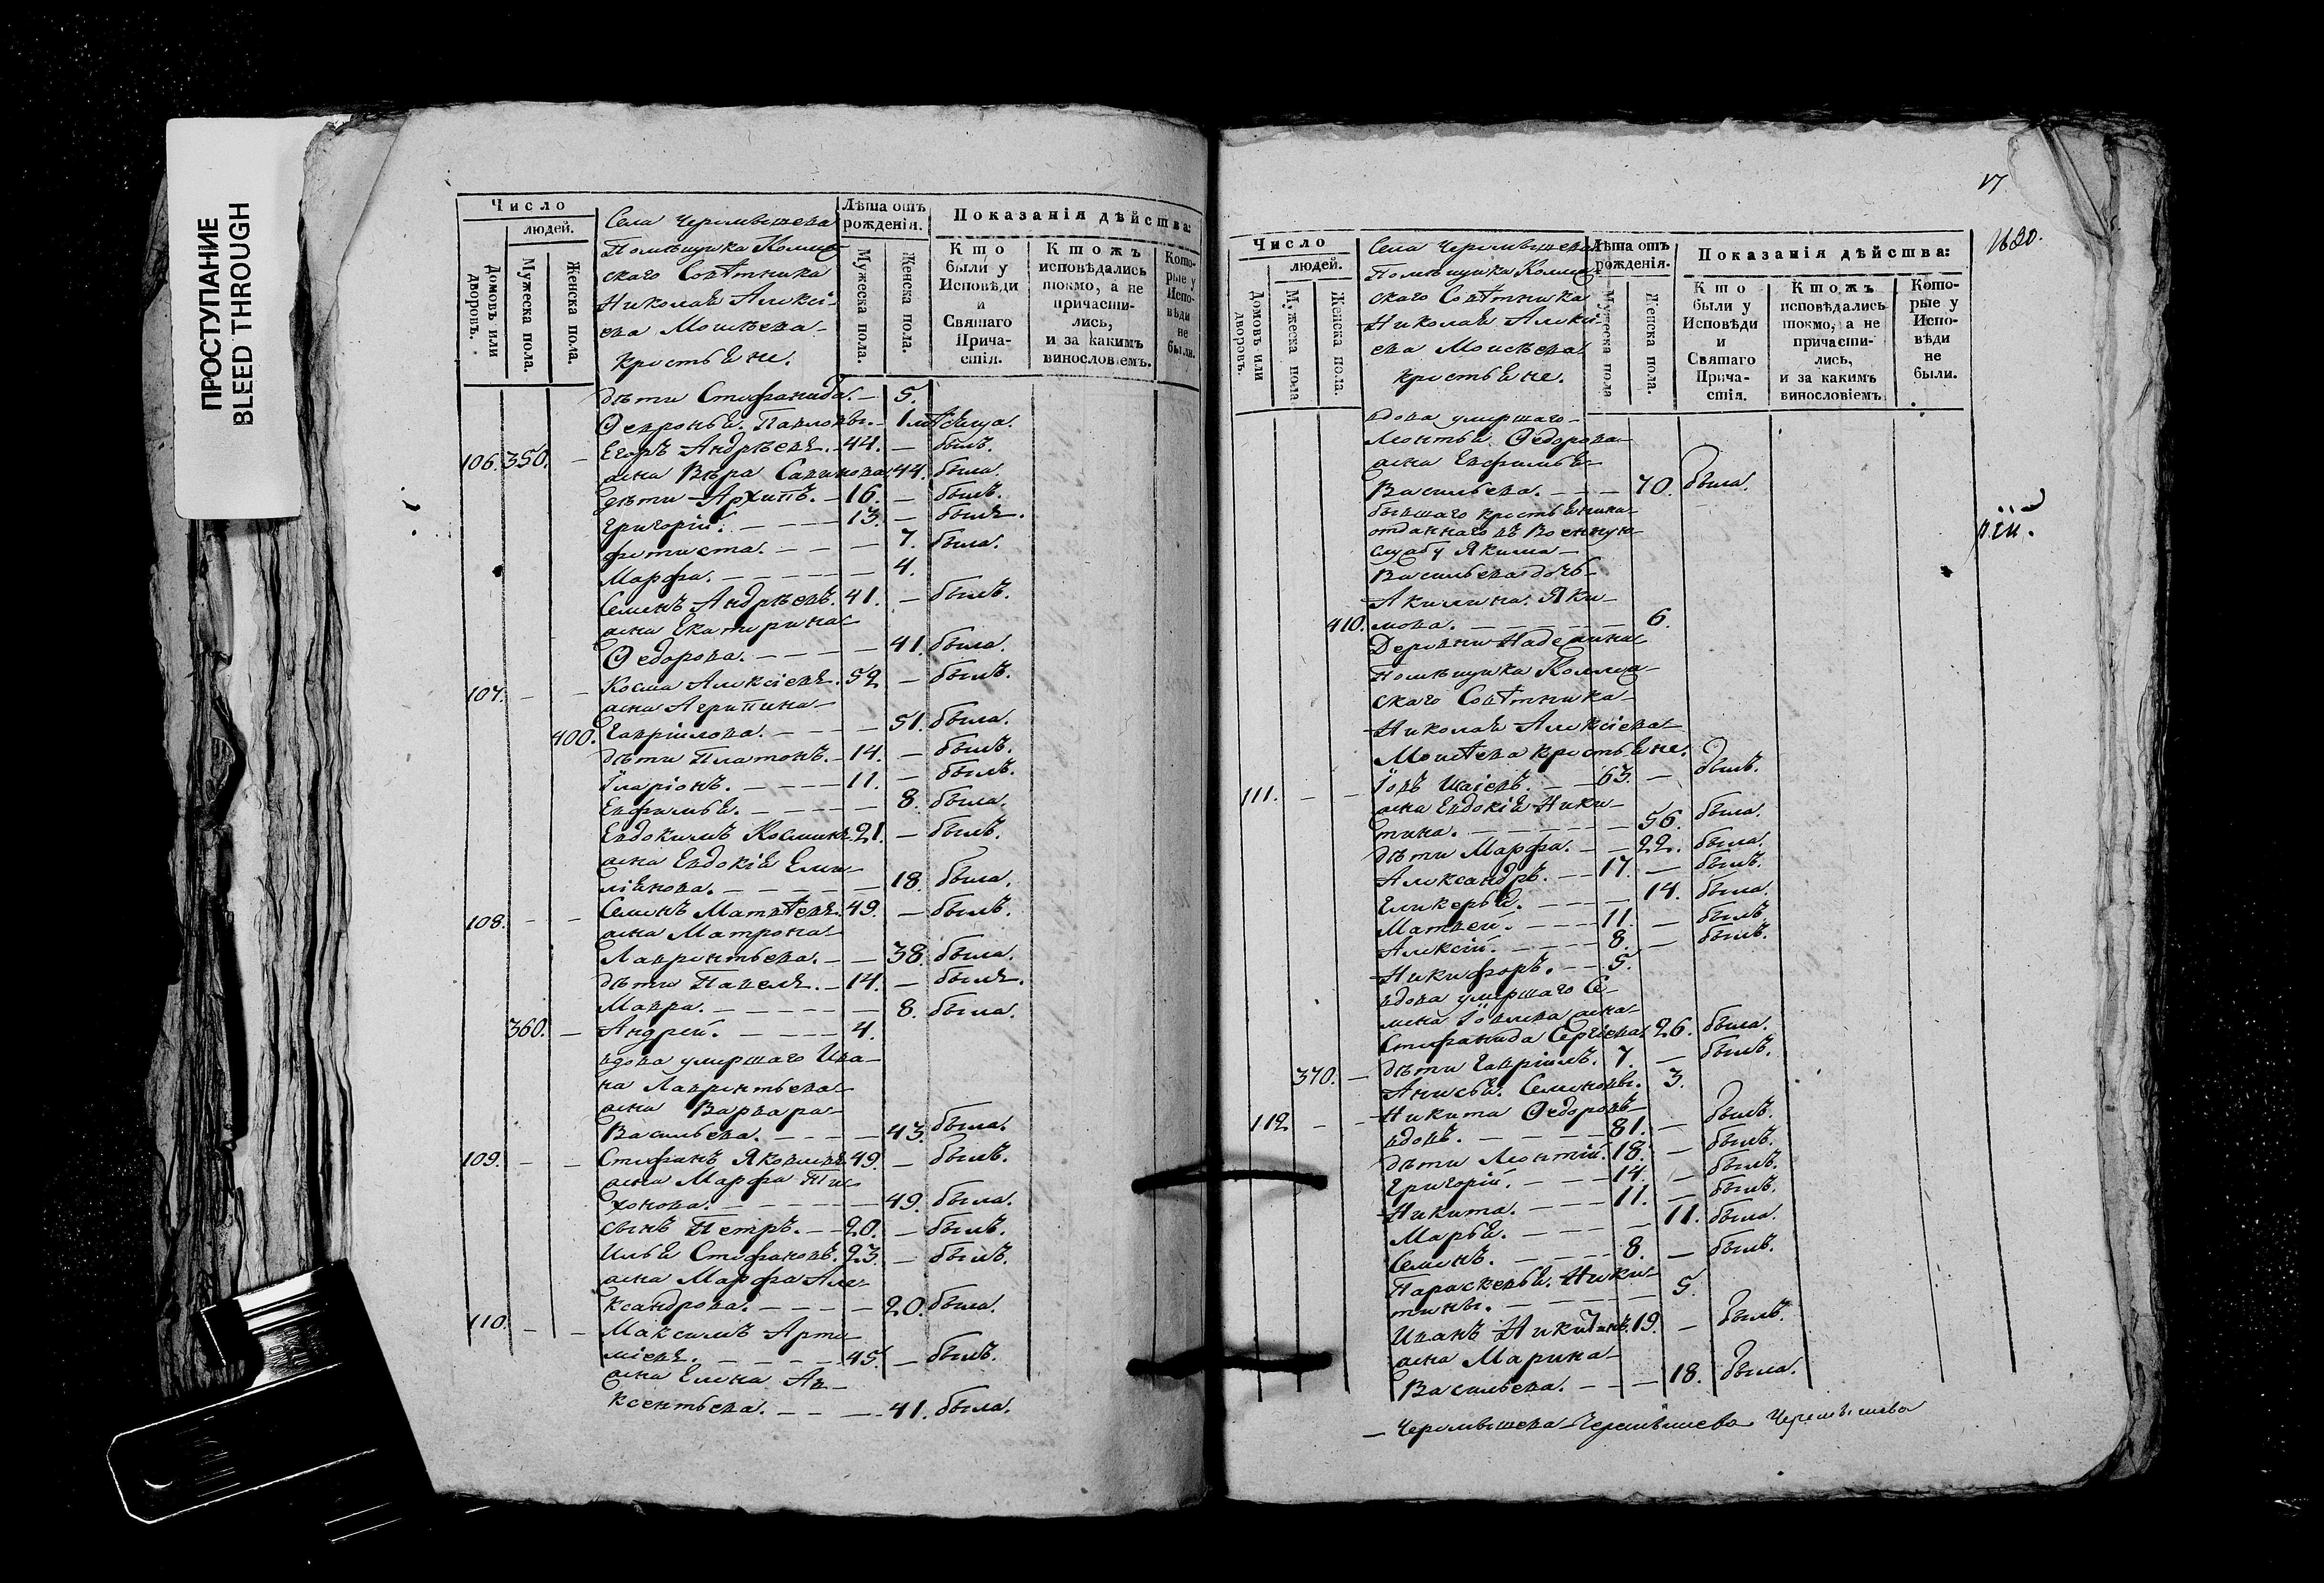 ПРОСТУПАНИЕ
BLEED THROUGH
Число
людей.
Домовъ или дворовъ.
Мужеска пола.
Женска пола.
Села Черемышева
Помѣщика Коллеж
скаго Совѣтника
Николая Алексі-
ева Моисѣева
крестьяне.
Лѣта отъ рожденія.
Мужеска пола.
Женска пола.
Показанія дѣйства:
Кто были у Исповѣди и Святаго Прича-стія.
Ктожъ исповѣдались токмо, а не причасти-лись, и за какимъ винословіемъ.
Кото-рые у Испо-вѣди не были.
дѣти Стефанида. — 5.
Февронья. Павловы. — 1 мѣсяца.
106. 350. — Егоръ Андрѣевъ. — 44. — былъ.
жена Вѣра Савинова 44. была.
дѣти Архипъ. — 16. — былъ.
Григорій. — — — 13. — былъ.
Фетиста. — — — 7. была.
Марфа. — — — — 4.
Семенъ Андрѣевъ. 41. — былъ.
жена Екатерина
Федорова. — — — — 41. была.
107. — — Косма Алексіевъ. 52 — былъ.
жена Агрипина
400. Гавріилова. — — — — 51. была.
дѣти Платонъ. — 14. — былъ.
Іларіонъ. — — — — 11. — былъ.
Евфимья. — — — — 8. была.
Евдокимъ Косминъ. 21. — былъ.
жена Евдокія Еме-
ліянова. — — — — — 18. была.
108. — — Семенъ Матвѣевъ. 49. — былъ.
жена Матрона
Лаврентьева. — — 38. была.
дѣти Павелъ. — 14. — былъ.
Мавра. — — — — — 8. была.
360. — Андрей. — — — — 4.
вдова умершаго Ива-
на Лаврентьева
жена Варвара
Васильева. — — — — 43. была.
109. — — Стефанъ Яковлевъ 49. — былъ.
жена Марфа Ти-
хонова. — — — — — 49. была.
сынъ Петръ. — — 20. — былъ.
Илья Стефановъ. 23. — былъ.
жена Марфа Але-
ксандрова. — — — — 20. была.
110. — — Максимъ Арте-
міевъ. — — — — — 45. — былъ.
жена Елена Ав-
ксентьева. — — — 41. была.
17
1820.
Число
людей.
Домовъ или дворовъ.
Мужеска пола
Женска пола.
Села Черемышева
Помѣщика Коллеж
скаго Совѣтника
Николая Алексі-
ева Моисѣева
крестьяне.
Лѣта отъ рожденія.
Мужеска пола
Женска пола.
Показанія дѣйства:
Кто были у Исповѣди и Святаго Прича-стія.
Ктожъ исповѣдались токмо, а не причасти-лись, и за какимъ винословіемъ
Кото-рые у Испо-вѣди не были.
вдова умершаго
Леонтья Федорова
жена Евфимья
Васильева. — — — 70. была.
бывшаго крестьянина
отданнаго въ Военную
службу Якима
Васильева дочь
Акилина. Яки-
410. мова. — — — — — 6.
Деревни Надеждина
Помѣщика Коллеж-
скаго Совѣтника
Николая Алексіева
Моисѣева крестьяне.
111. — — Іовъ Исаіевъ. — — 63. — былъ.
жена Евдокія Ники-
тина. — — — — — 56. была.
дѣти Марфа. — — 22. была.
Александръ. — — 17. — былъ.
Гликерья. — — — — 14. была.
Матвей. — — — 11. — былъ.
Алексій. — — — — 8. — былъ.
Никифоръ. — — 5.
вдова умершаго Се-
мена Іовлева жена
Стефанида Сергіева. 26. была.
370. — дѣти Гавріилъ. 7. — былъ.
Анисья. Семеновы. 3.
112. — — Никита Федоровъ
вдовъ. — — — — 81. — былъ.
дѣти Леонтій. 18. — былъ.
Григорій. — — — 14. — былъ.
Никита. — — — 11. — былъ.
Марья. — — — — 11. была.
Семенъ. — — — — 8. — былъ.
Параскевья. Ники-
тины. — — — — — 5.
Иванъ Никитинъ. 19. — былъ.
жена Марина
Васильева. — — — 18. была.
— Черемышева Черемышева Черемышева